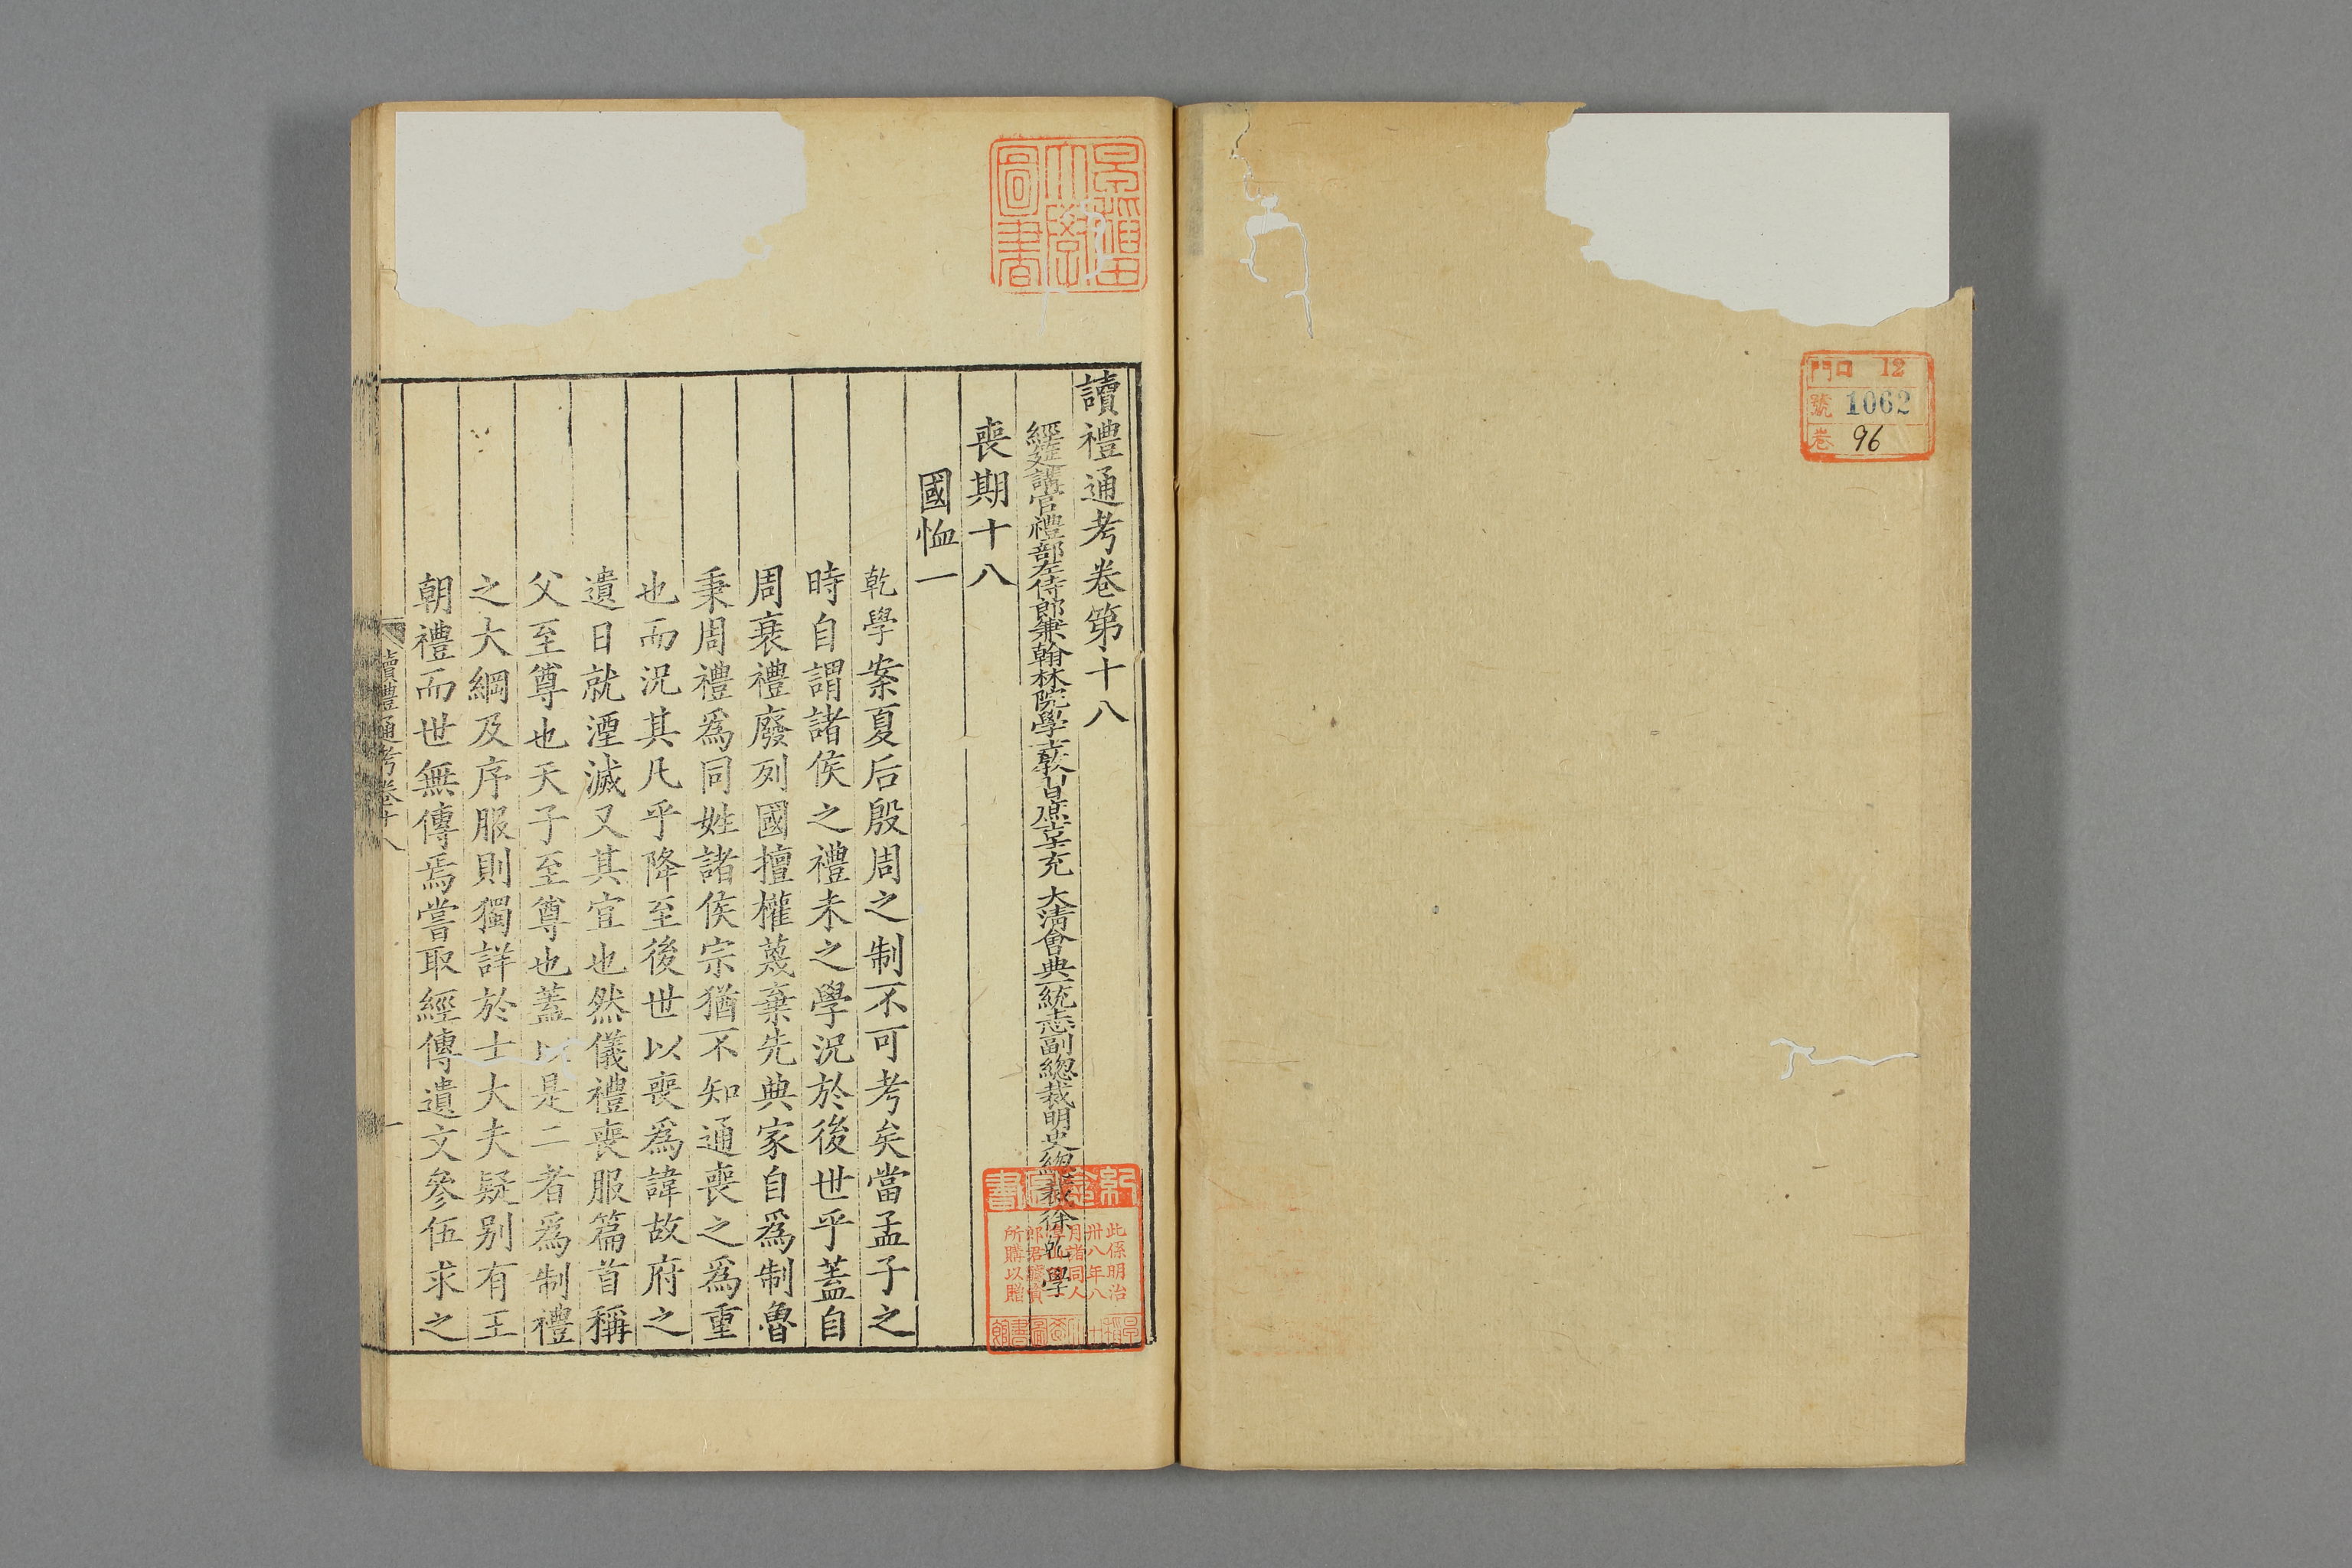 門口 12
號 1062
卷 96
讀禮通考卷第十八
經筵講官禮部左侍郎兼翰林院學士教習庶吉士充 大清會典一統志副總裁明史總裁徐乾學
喪期十八
國恤一
乾學案夏后殷周之制不可考矣當孟子之
時自謂諸侯之禮未之學況於後世乎蓋自
周衰禮廢列國擅權蔑棄先典家自爲制魯
秉周禮爲同姓諸侯宗猶不知通喪之爲重
也而況其凡乎降至後世以喪爲諱故府之
遺日就湮滅又其宜也然儀禮喪服篇首稱
父至尊也天子至尊也蓋以是二者爲制禮
之大綱及序服則獨詳於士大夫疑别有王
朝禮而世無傳焉嘗取經傳遺文參伍求之
讀禮通考卷十八
一
圖書
此係明治
卅八年八
月諸同人
所購以贈